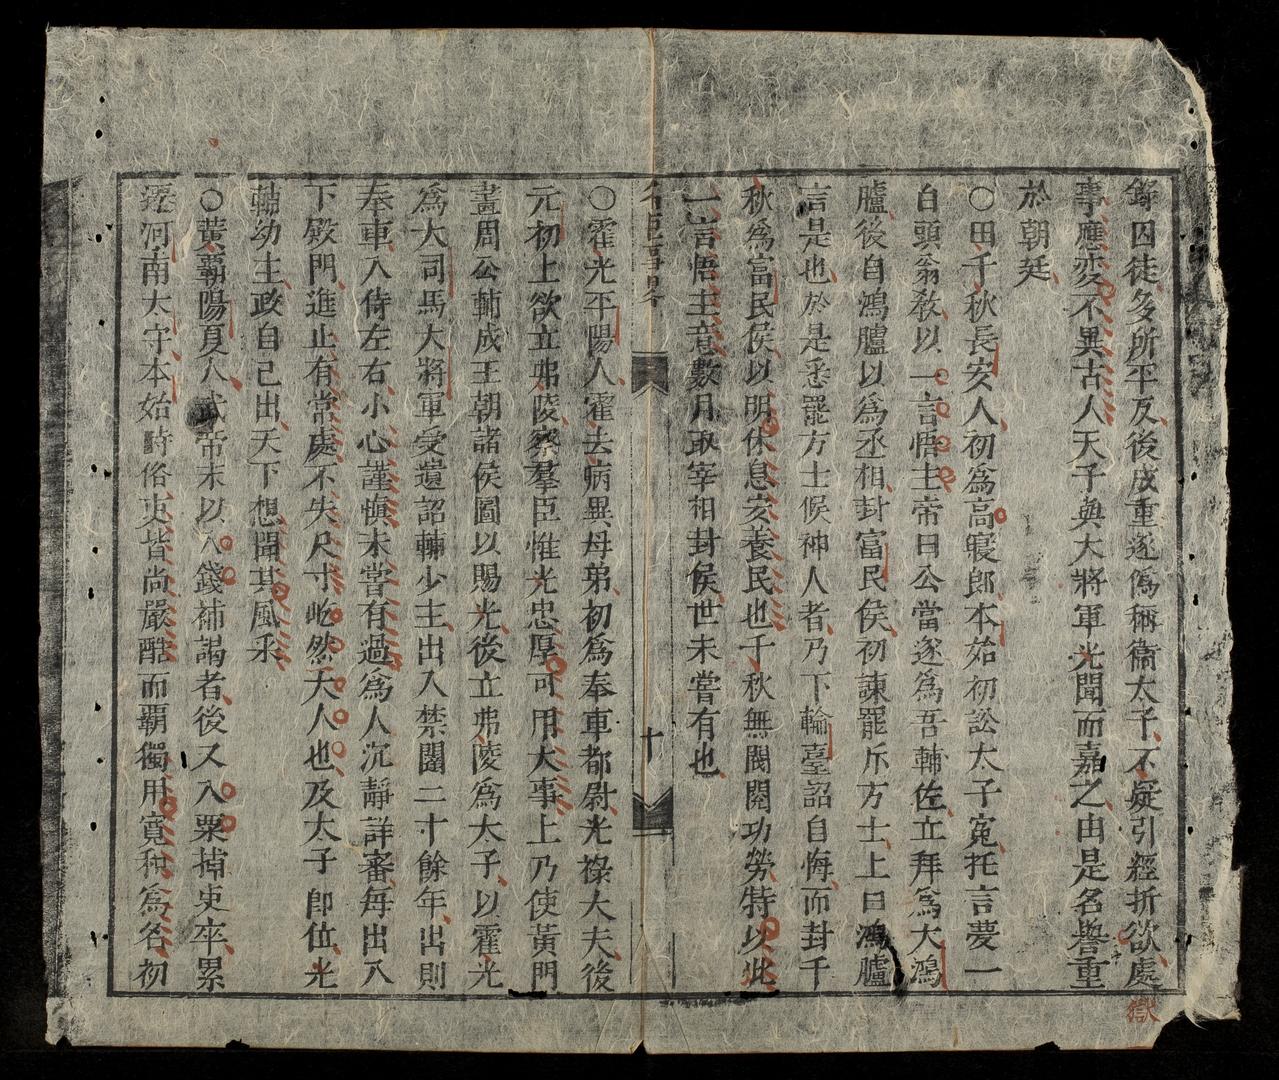 錄囚徒多所平反後成重遂僞稱衞太子不疑引經折欲處
事應变不異古人天子與大將軍光聞而嘉之由是名譽重
於朝廷
○田千秋長安人初爲高寢郎本始初訟太子寃托言夢一
白頭翁敎以一言悟主帝曰公當遂爲吾輔佐立拜爲大鴻
臚後自鴻臚以爲丞相封富民侯初諫罷斥方士上曰鴻臚
言是也於是悉罷方士候神人者乃下輪臺詔自悔而封千
秋爲富民侯以明休息安養民也千秋無閥閱功勞特以此
一言悟主意數月取宰相封侯世未嘗有也
名臣事畧
十
○霍光平陽人霍去病異母弟初爲奉車都尉光祿大夫後
元初上欲立弗陵察羣臣惟光忠厚可用大事上乃使黃門
畫周公輔成王朝諸侯圖以賜光後立弗陵爲太子以霍光
爲大司馬大將軍受遺詔輔少主出入禁闥二十餘年出則
奉車入侍左右小心謹愼未嘗有過爲人沉靜詳審每出入
下殿門進止有常處不失尺寸屹然天人也及太子卽位光
輔幼主政自己出天下想聞其風采
○黃霸陽夏人武帝末以入錢補謁者後又入粟補吏卒累
遷河南太守本始時俗吏皆尚嚴酷而霸獨用寬和爲名初
獄